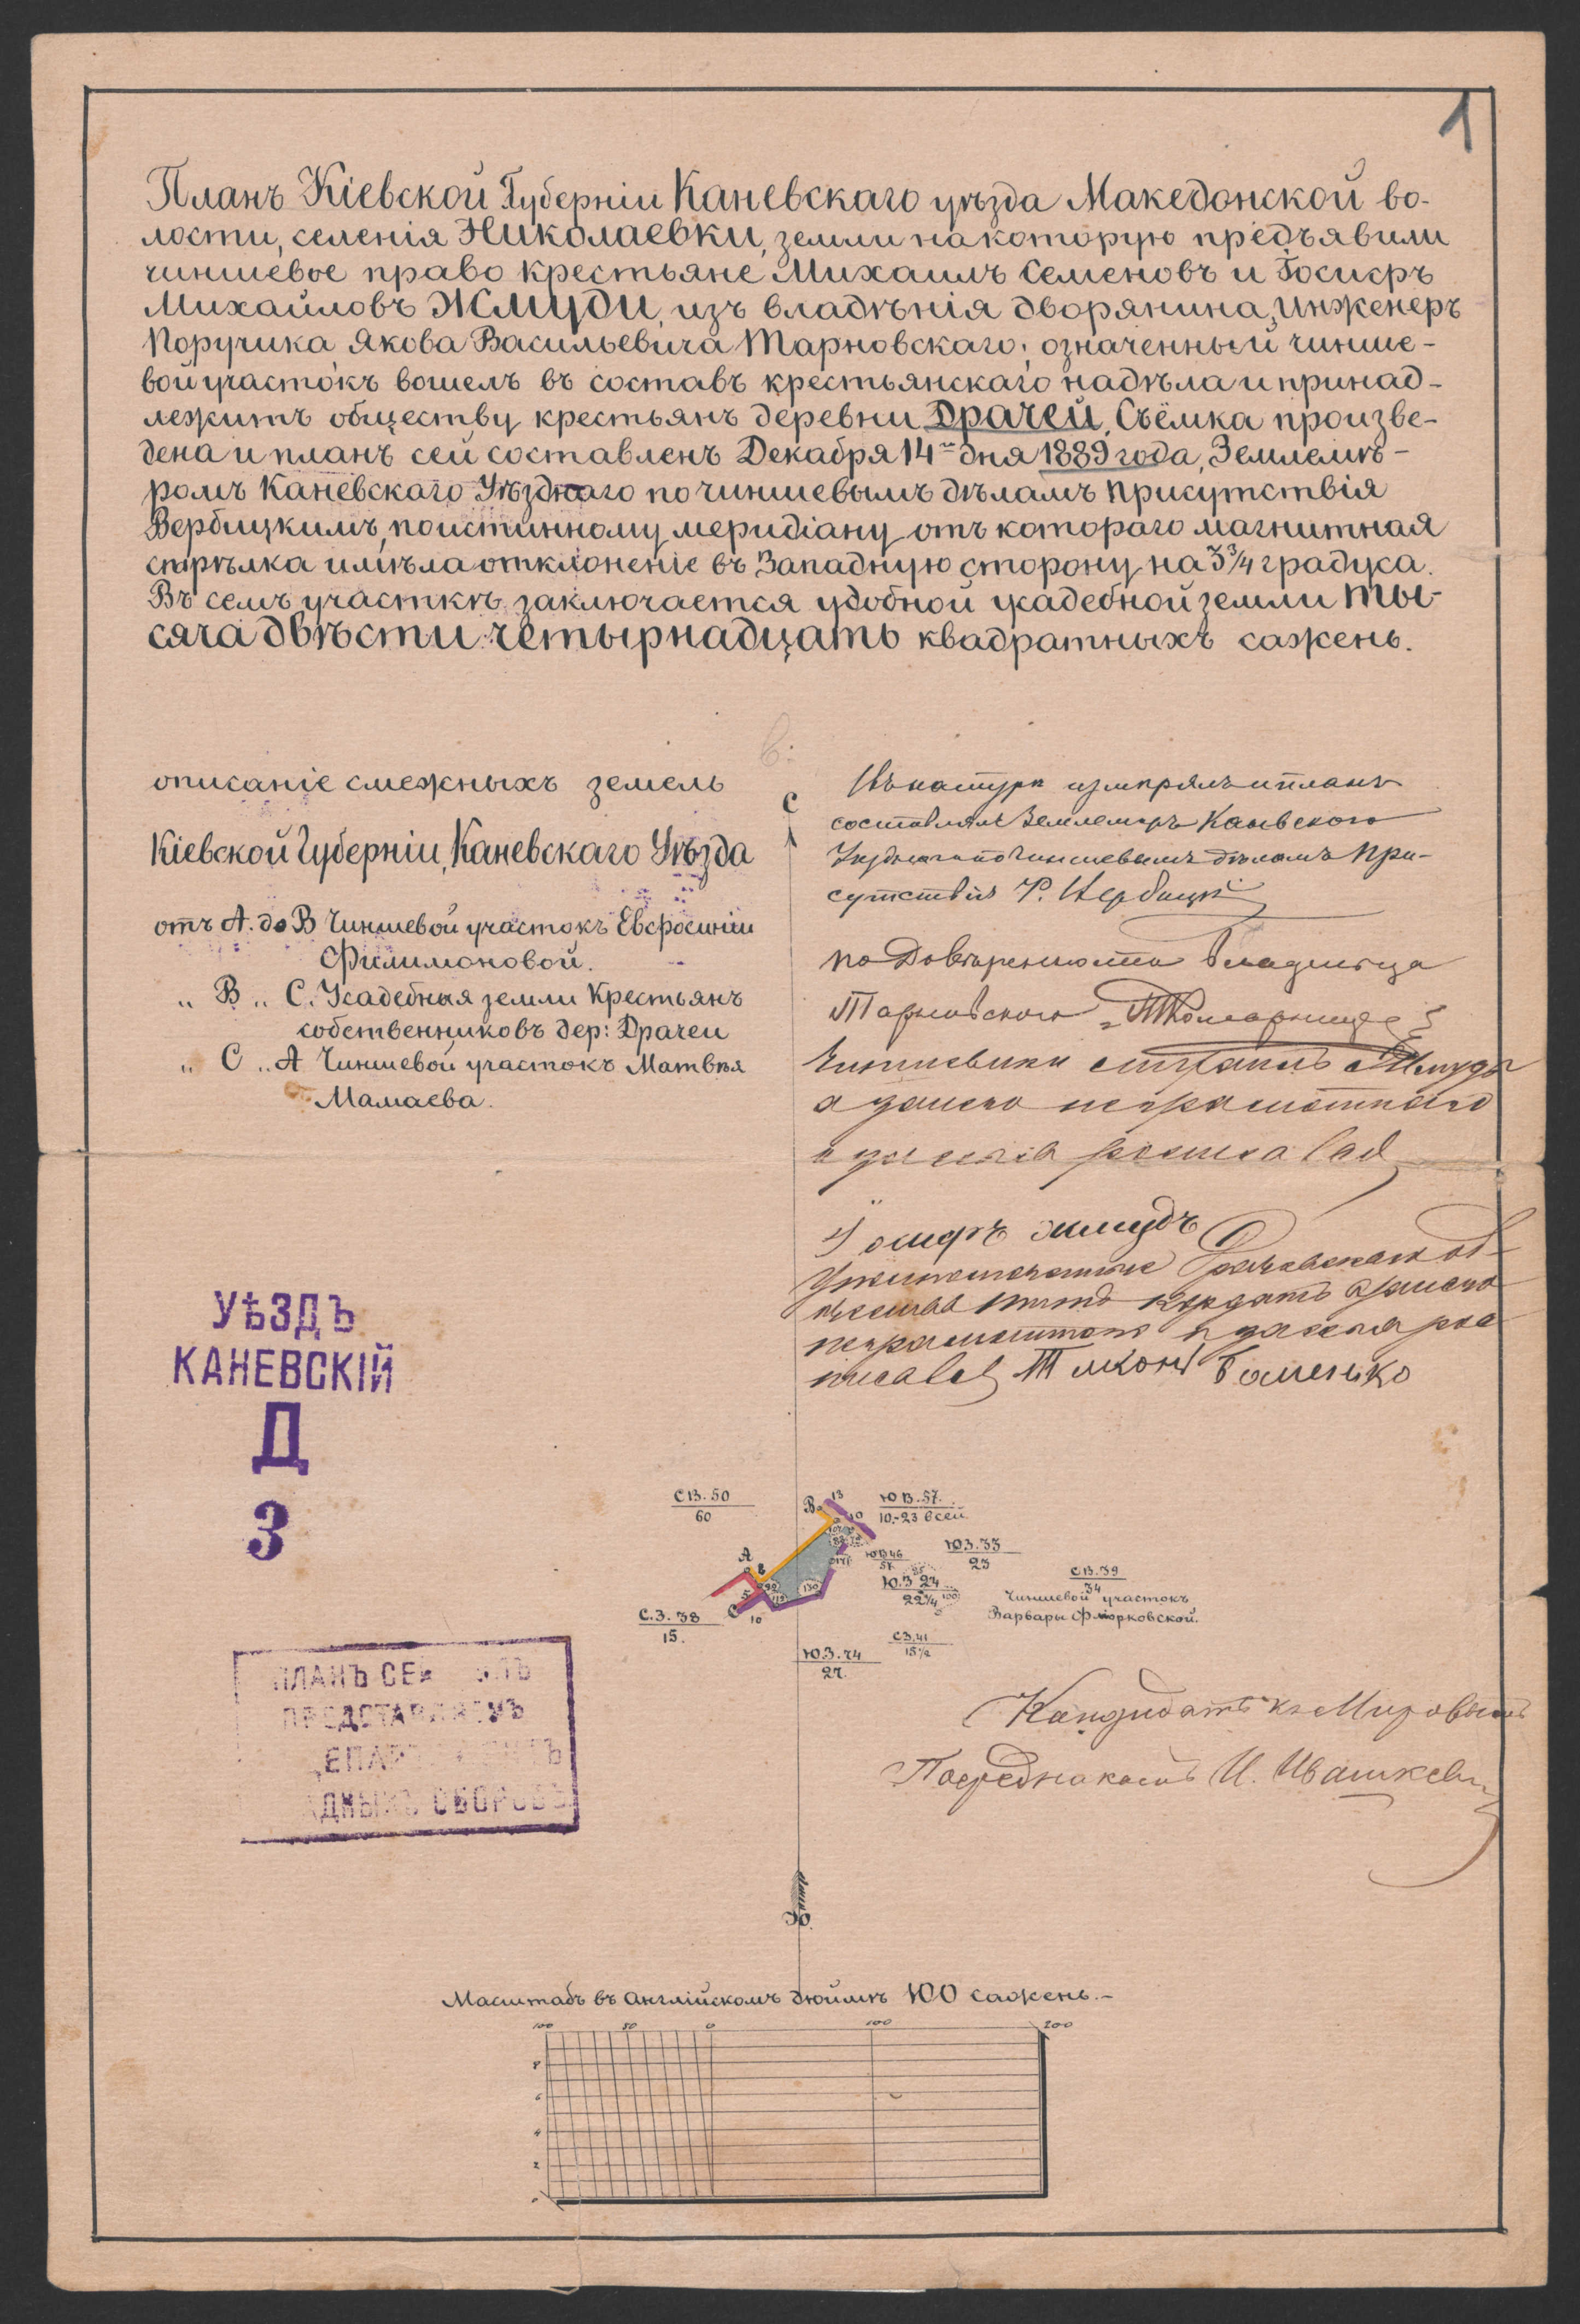 1
Планъ Кіевской Губерніи Каневскаго уѣзда Македонской во-
лости, селенія Николаевки, земли на которую предъявили
чиншевое право крестьяне Михаилъ Семеновъ и Іосифъ
Михайловъ Жмуди, изъ владѣнія дворянина, Инженеръ
Поручика Якова Васильевича Тарновскаго; означенный чинше-
вой участокъ вошелъ въ составъ крестьянскаго надѣла и принад-
лежитъ обществу крестьянъ деревни Драчей, Съёмка произве-
дена и планъ сей составленъ Декабря 14го дня 1889 года, Землемѣ-
ромъ Каневскаго Уѣзднаго по чиншевымъ дѣламъ присутствія
Вербицкимъ, по истинному меридіану отъ котораго магнитная
стрѣлка имѣла отклоненіе въ Западную сторону на 3¾ градуса.
Въ семъ участкѣ заключается удобной усадебной земли ты-
сяча двѣсти четырнадцать квадратныхъ сажень.
описаніе смежныхъ земель
Кіевской Губерніи, Каневскаго Уѣзда
отъ А. до В Чиншевой участокъ Евфросиніи
Филимоновой.
„ В „ С. Усадебная земли Крестьянъ
собственниковъ дер: Драчей
„ С „ А Чиншевой участокъ Матвѣя
Мамаева.
С
Въ натурѣ измѣрялъ и планъ
составлялъ Землемѣръ Каневскаго
Уѣзднаго по Чиншевымъ дѣламъ При-
сутствія Вербицкій
по Довѣренности Владѣльца
Тарновскаго
Чиншевики Жмудь
а занего неграмотнаго
Іосифъ Жмудь
Уполномоченные
неграмотного
Тихонъ
УѢЗДЪ
КАНЕВСКІЙ
Д
3
СВ. 50
60
В 13
10
ЮВ. 57.
10.-23 всей
А
ЮВ 46
ЮЗ. 33
23
Ю.З 24
22¼
СВ. 39
34
Чиншевой участокъ
Варвары
130
5
С
10
С.З. 38
15.
СЗ. 41
15½
ЮЗ. 74
27.
ПЛАНЪ СЕЙ
ПРЕДСТАВЛЯЕМЪ
ДЕПАРТАМЕНТЪ
СБОРОВЪ
Кандидатъ къ Мировымъ
Посредникамъ И. Ивашкевичъ
Ю
Масштабъ въ Англійскомъ дюймѣ 100 сажень.-
100 50 0 100 200
8
6
4
2
0